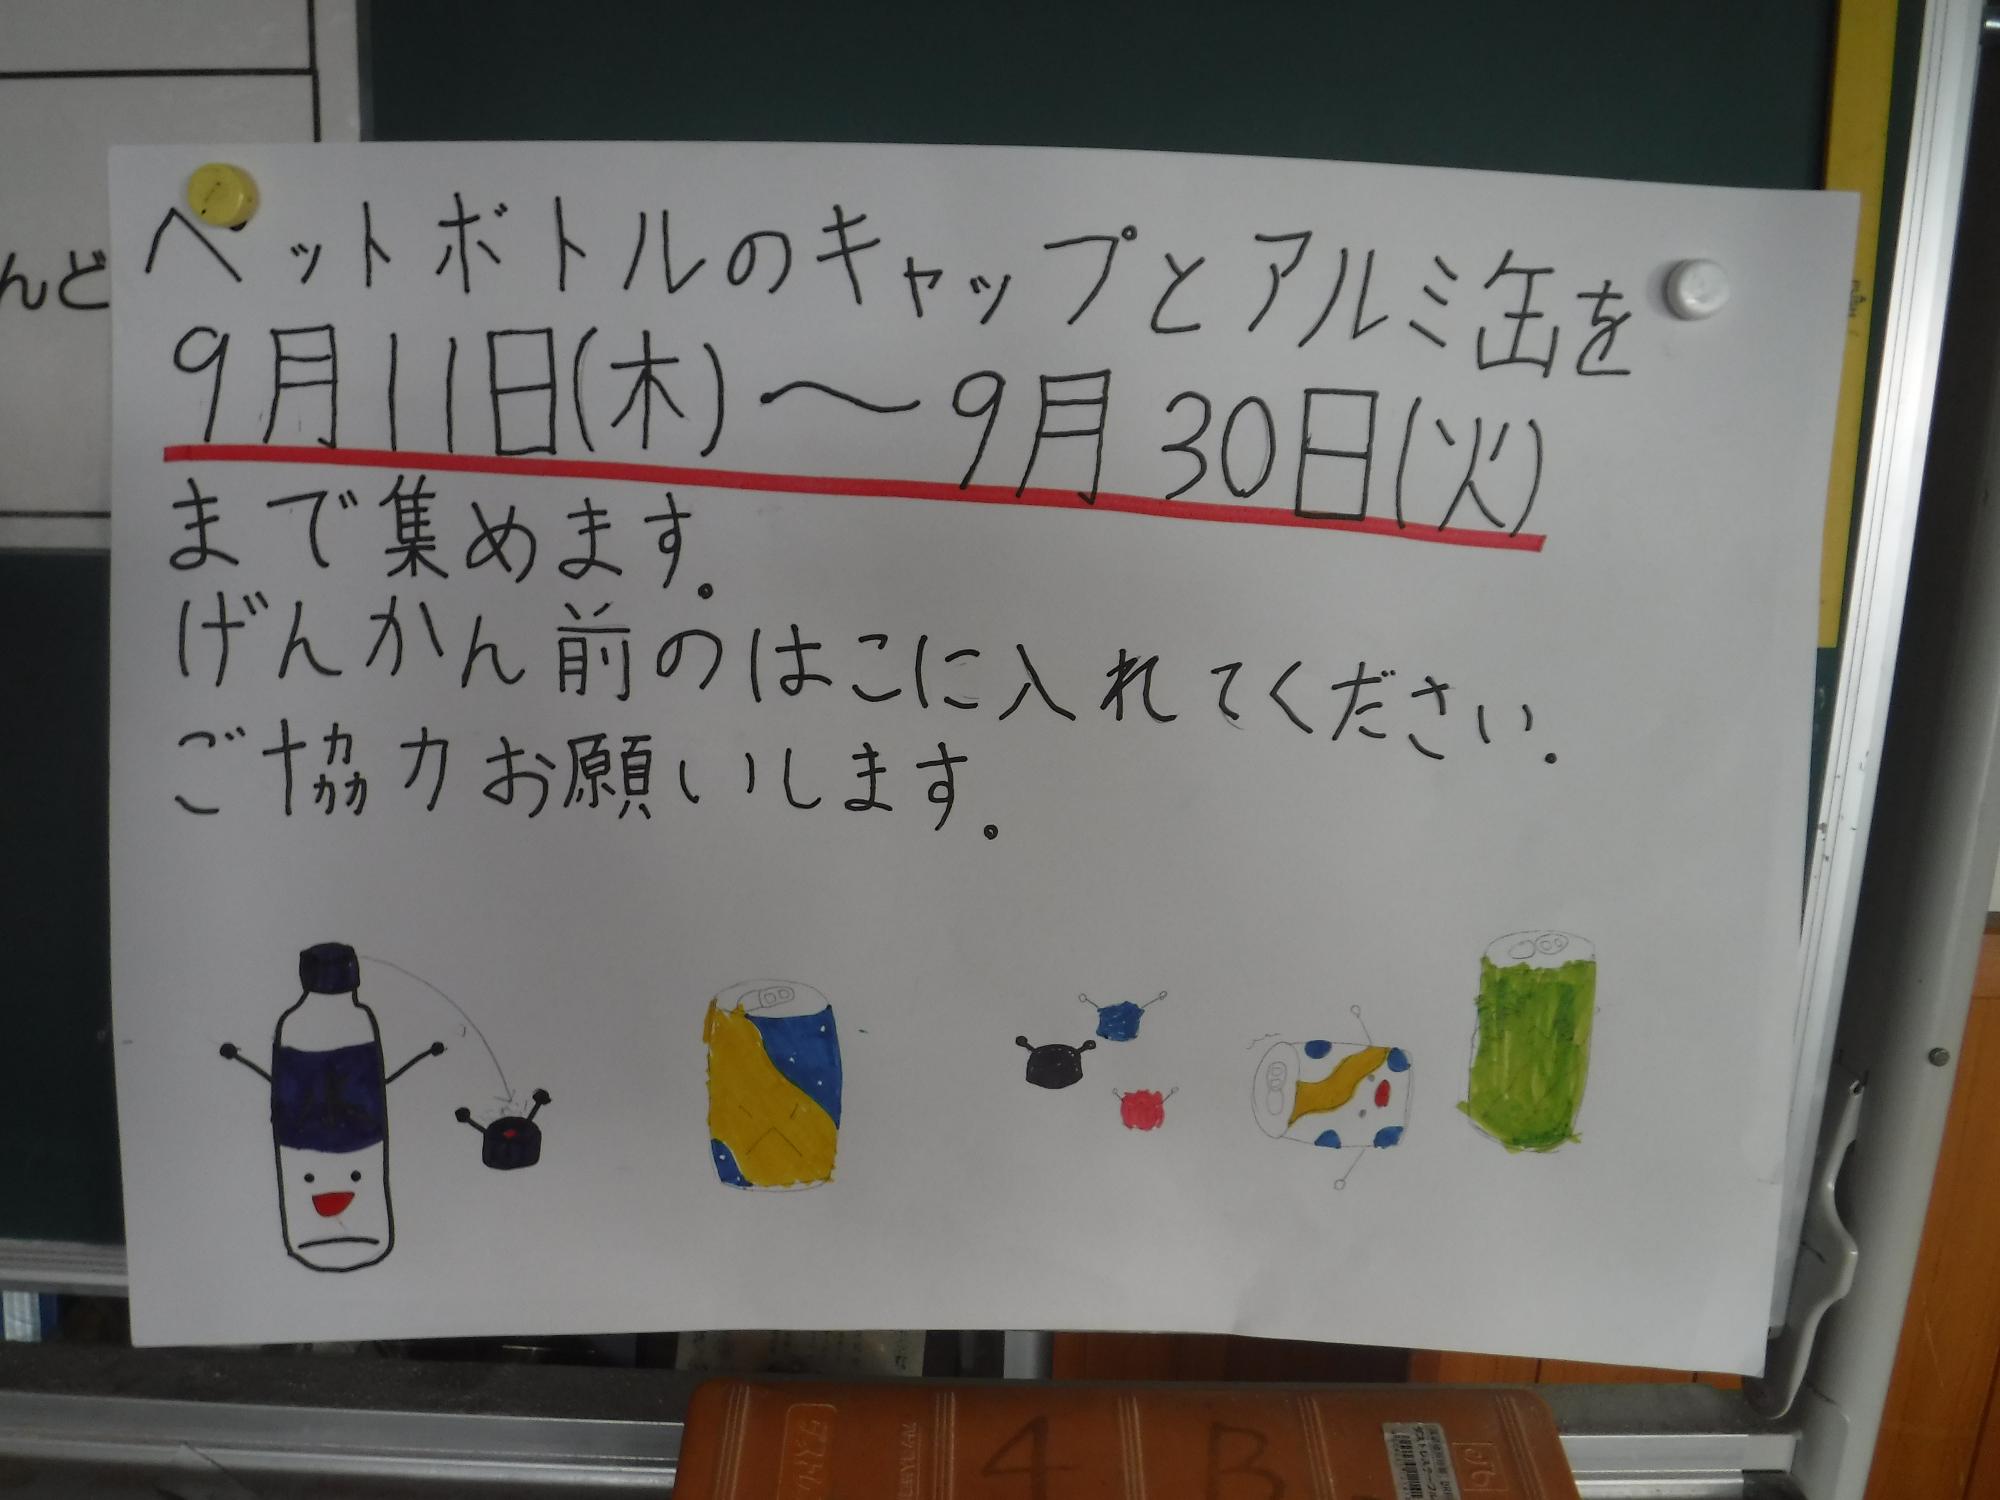 んど
ペットボトルのキャップとアルミ缶を
9月11日(木)〜9月30日(火)
まで集めます。
げんかん前のはこに入れてください。
ご協力お願いします。
水
4 B